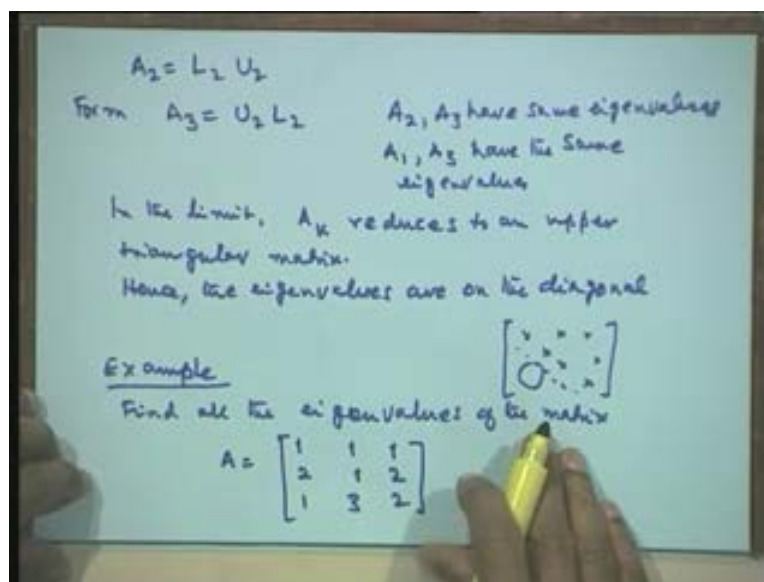 A₂ = L₂ U₂
Form A₃ = U₂ L₂
A₂, A₃ have same eigenvalues
A₁, A₃ have the same
eigenvalues
In the limit, Aₖ reduces to an upper
triangular matrix.
Hence, the eigenvalues are on the diagonal
Example
Find all the eigenvalues of the matrix
A = [1 1 1
2 1 2
1 3 2]